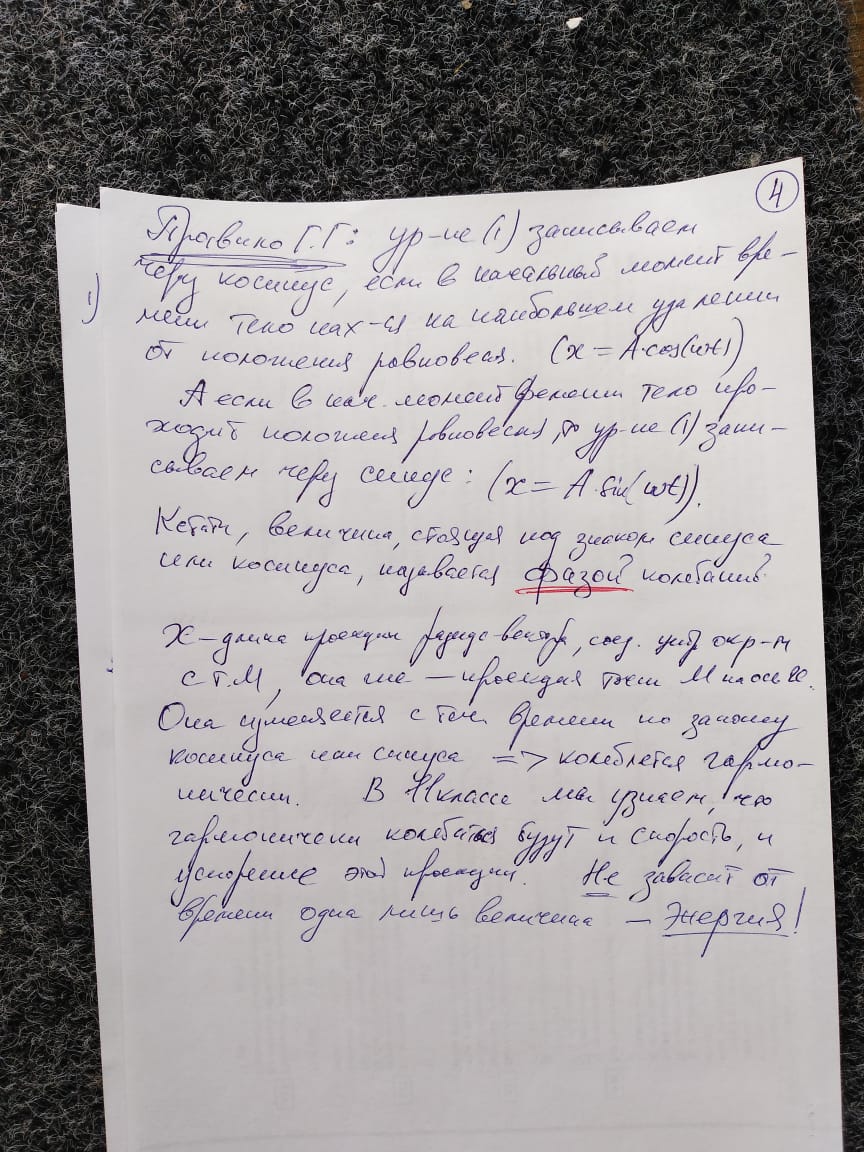 4
Правило Г.Г: ур-ие (1) записываем
через косинус, если в начальный момент вре-
мени тело нах-ся на наибольшем удалении
от положения равновесия. (x = A·cos(ωt))
А если в нач. момент времени тело про-
ходит положения равновесия, то ур-ие (1) запи-
сываем через синус: (x = A·sin(ωt)).
Кстати, величина, стоящая под знаком синуса
или косинуса, называется фазой колебаний.
X – длина проекции радиус-вектора, соед. центр окр-и
с т.М, она же — проекция точки М на ось
Она изменяется с теч. времени по закону
косинуса или синуса => колеблется гармо-
нически. В 11 классе мы узнаем, что
гармонически колебаться будут и скорость, и
ускорение этой проекции. Не зависит от
времени одна лишь величина — Энергия!
1)